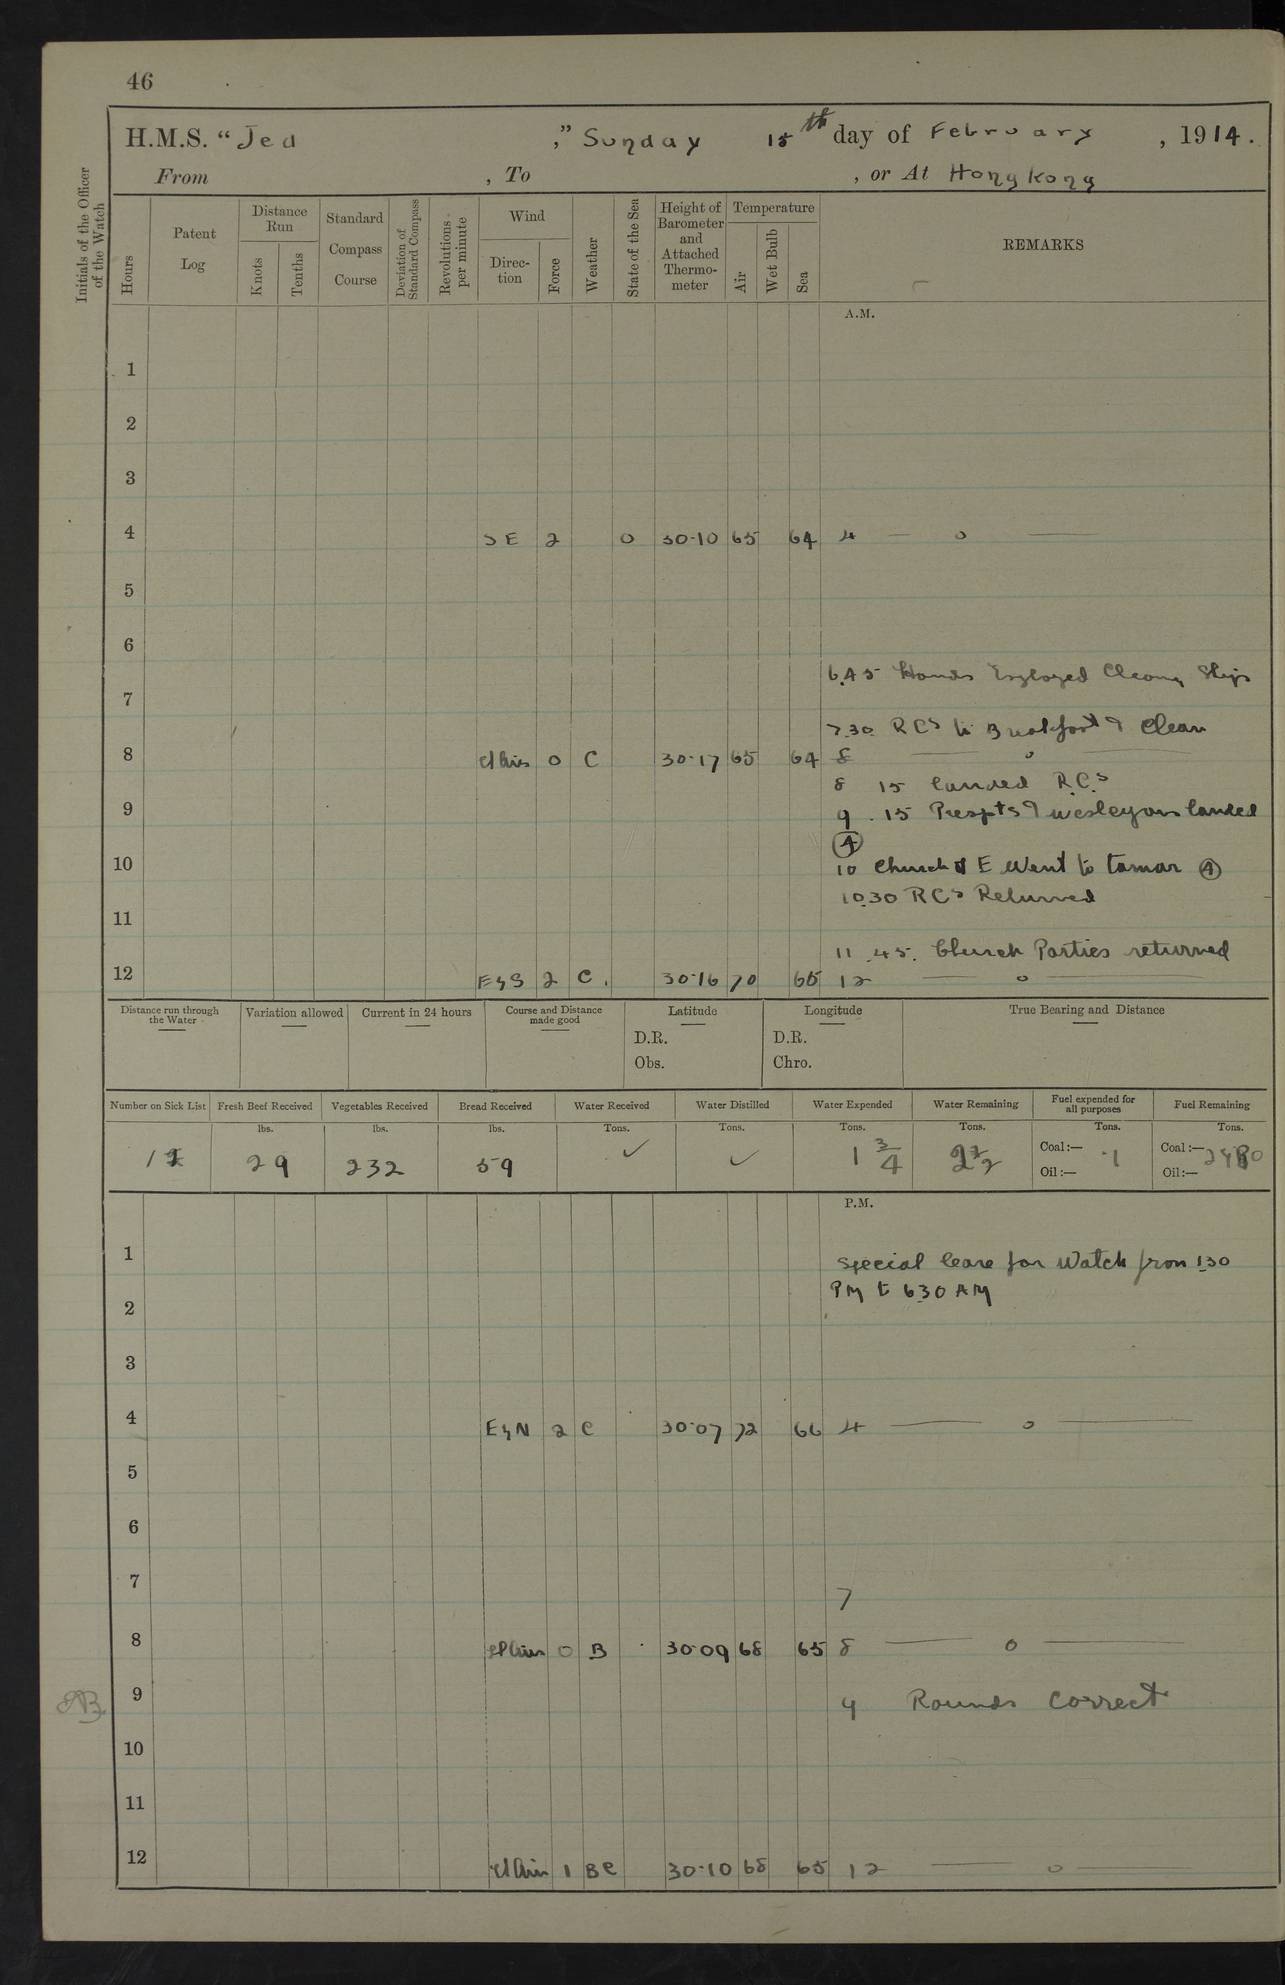 46
H.M.S. “Jed ,” Sunday 15th day of February , 1914.
From , To , or At Hong Kong
Initials of the Officer of the Watch
Hours
Patent Log
Distance Run
Knots
Tenths
Standard Compass Course
Deviation of Standard Compass
Revolutions per minute
Wind
Direc-tion
Force
Weather
State of the Sea
Height of Barometer and Attached Thermo-meter
Temperature
Air
Wet Bulb
Sea
REMARKS
A.M.
1
2
3
4 SE 2 0 30.10 65 64 4 — o —
5
6
6.45 Hands Employed Cleang Ship
7
7.30 RCs to Breakfast & Clean
8 0 C 30.17 65 64 8 — o —
8 15 landed R.C.s
9 9.15 Prespts & wesleyans landed
(4)
10 10 Church of E Went to tamar (4)
10.30 RCs Returned
11
11.45. Church Parties returned
12 EyS 2 C. 30.16 70 65 12 — o —
Distance run through the Water
Variation allowed
Current in 24 hours
Course and Distance made good
Latitude
D.R.
Obs.
Longitude
D.R.
Chro.
True Bearing and Distance
Number on Sick List
Fresh Beef Received
Vegetables Received
Bread Received
Water Received
Water Distilled
Water Expended
Water Remaining
Fuel expended for all purposes
Fuel Remaining
lbs. lbs. lbs. Tons. Tons. Tons. Tons. Tons. Tons.
29 232 59 ✓ ✓ 1 3/4 Coal:— .1 Coal:—
Oil:— Oil:—
P.M.
1 Special leave for Watch from 1.30
PM to 6.30 AM
2
3
4 EyN 2 C 30.07 72 66 4 — o —
5
6
7 7
8 0 B 30.09 68 65 8 — o —
9 9 Rounds Correct
10
11
12 1 BC 30.10 68 65 12 — o —